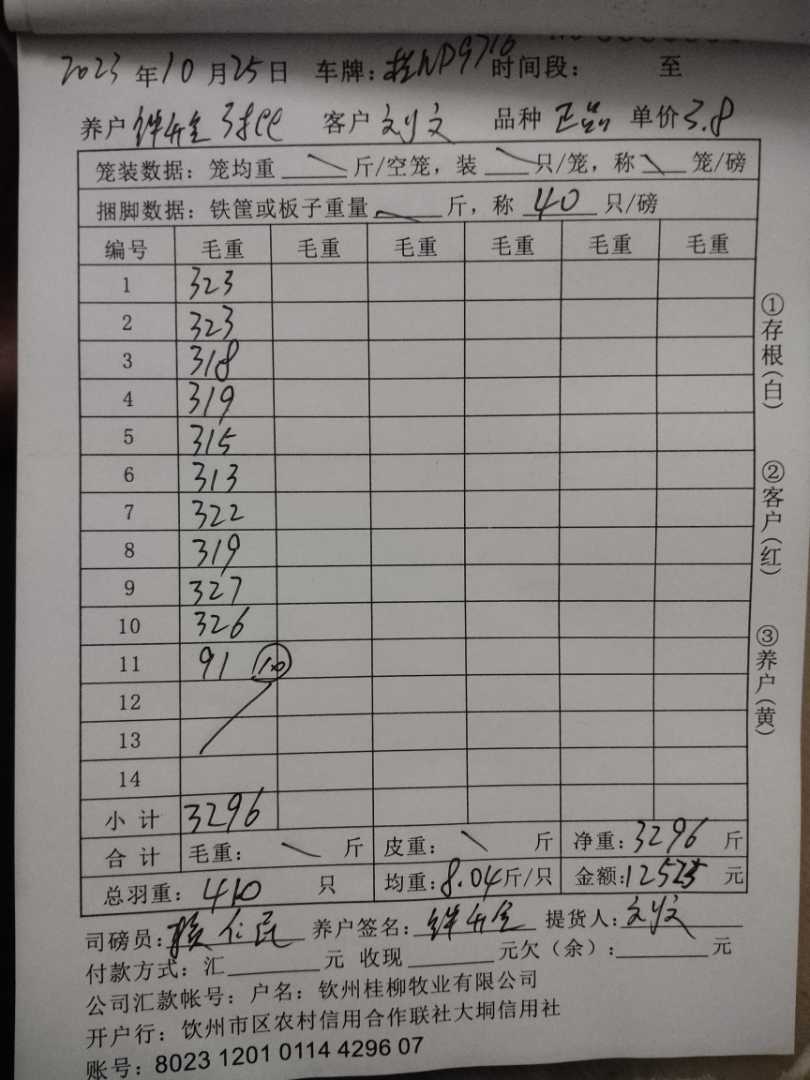 2023 年 10 月 25 日 车牌：桂ND9716 时间段： 至
养户 客户 刘文 品种 正品 单价 3.8
笼装数据：笼均重 斤/空笼，装 只/笼，称 笼/磅
捆脚数据：铁筐或板子重量 斤，称 40 只/磅
编号 毛重 毛重 毛重 毛重 毛重 毛重
1 323
2 323
3 318
4 319
5 315
6 313
7 322
8 319
9 327
10 326
11 91 10
12
13
14
小 计 3296
合 计 毛重： 斤 皮重： 斤 净重：3296 斤
总羽重：410 只 均重：8.04斤/只 金额：12525 元
司磅员： 仁民 养户签名： 提货人：刘文
付款方式：汇 元 收现 元欠（余）： 元
公司汇款帐号：户名：钦州桂柳牧业有限公司
开户行：饮州市区农村信用合作联社大垌信用社
账号：8023 1201 0114 4296 07
①存根（白）
②客户（红）
③养户（黄）